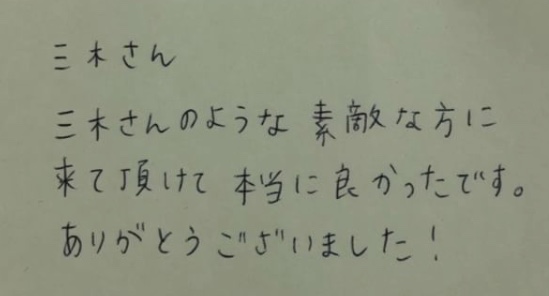 三木さん
三木さんのような素敵な方に
来て頂けて本当に良かったです。
ありがとうございました！